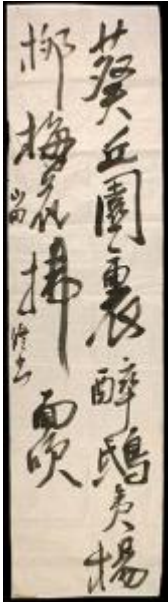 葵丘園裏醉鴟夷楊
柳梅花拂面